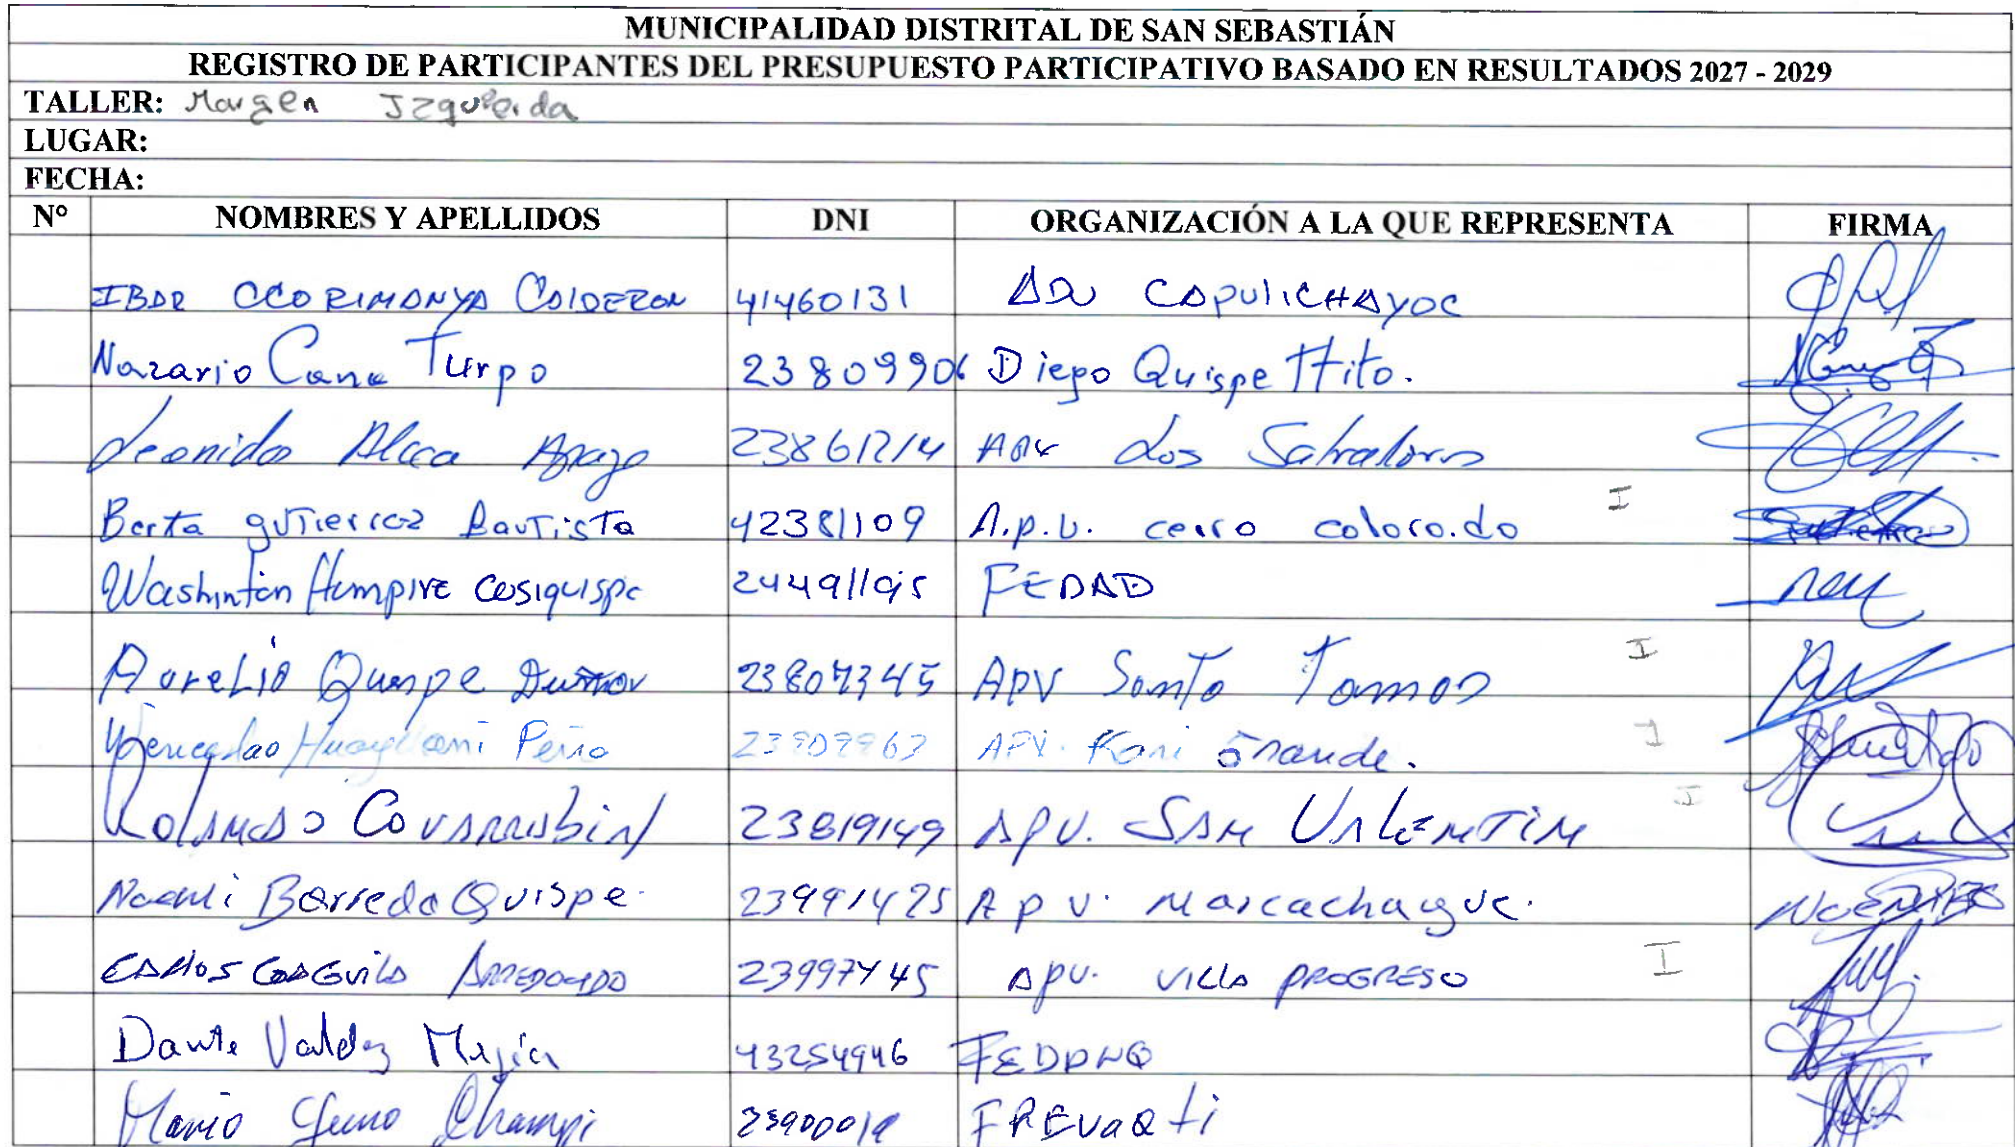 MUNICIPALIDAD DISTRITAL DE SAN SEBASTIÁN
REGISTRO DE PARTICIPANTES DEL PRESUPUESTO PARTICIPATIVO BASADO EN RESULTADOS 2027 - 2029
TALLER: Margen Izquierda
LUGAR:
FECHA:
N° NOMBRES Y APELLIDOS DNI ORGANIZACIÓN A LA QUE REPRESENTA FIRMA
CCORIMANYA CALDERON 41460131 CAPULICHAYOC
Nazario Cana Turpo 23809906 Diego Quispe Ttito.
Leonidas Alcca 23861214 Los Salvadores
Berta gutierrez Bautista 42381109 A.p.v. cerro colorado I
Washinton Humpire Cusiquispe 24491195 FEDAD
Aurelio Quispe APV Santo Tomas I
Wenceslao Peña APV. Kari Grande.
Rolando Covarrubias 23819149 APV. SAN VALENTIN I
Noemi Barreda Quispe 23991425 Apv. Marcachayoc.
CARLOS ARREDONDO APV. VILLA PROGRESO I
Dante Valdez Mejia 43254946
Mario Champi FREVaQti